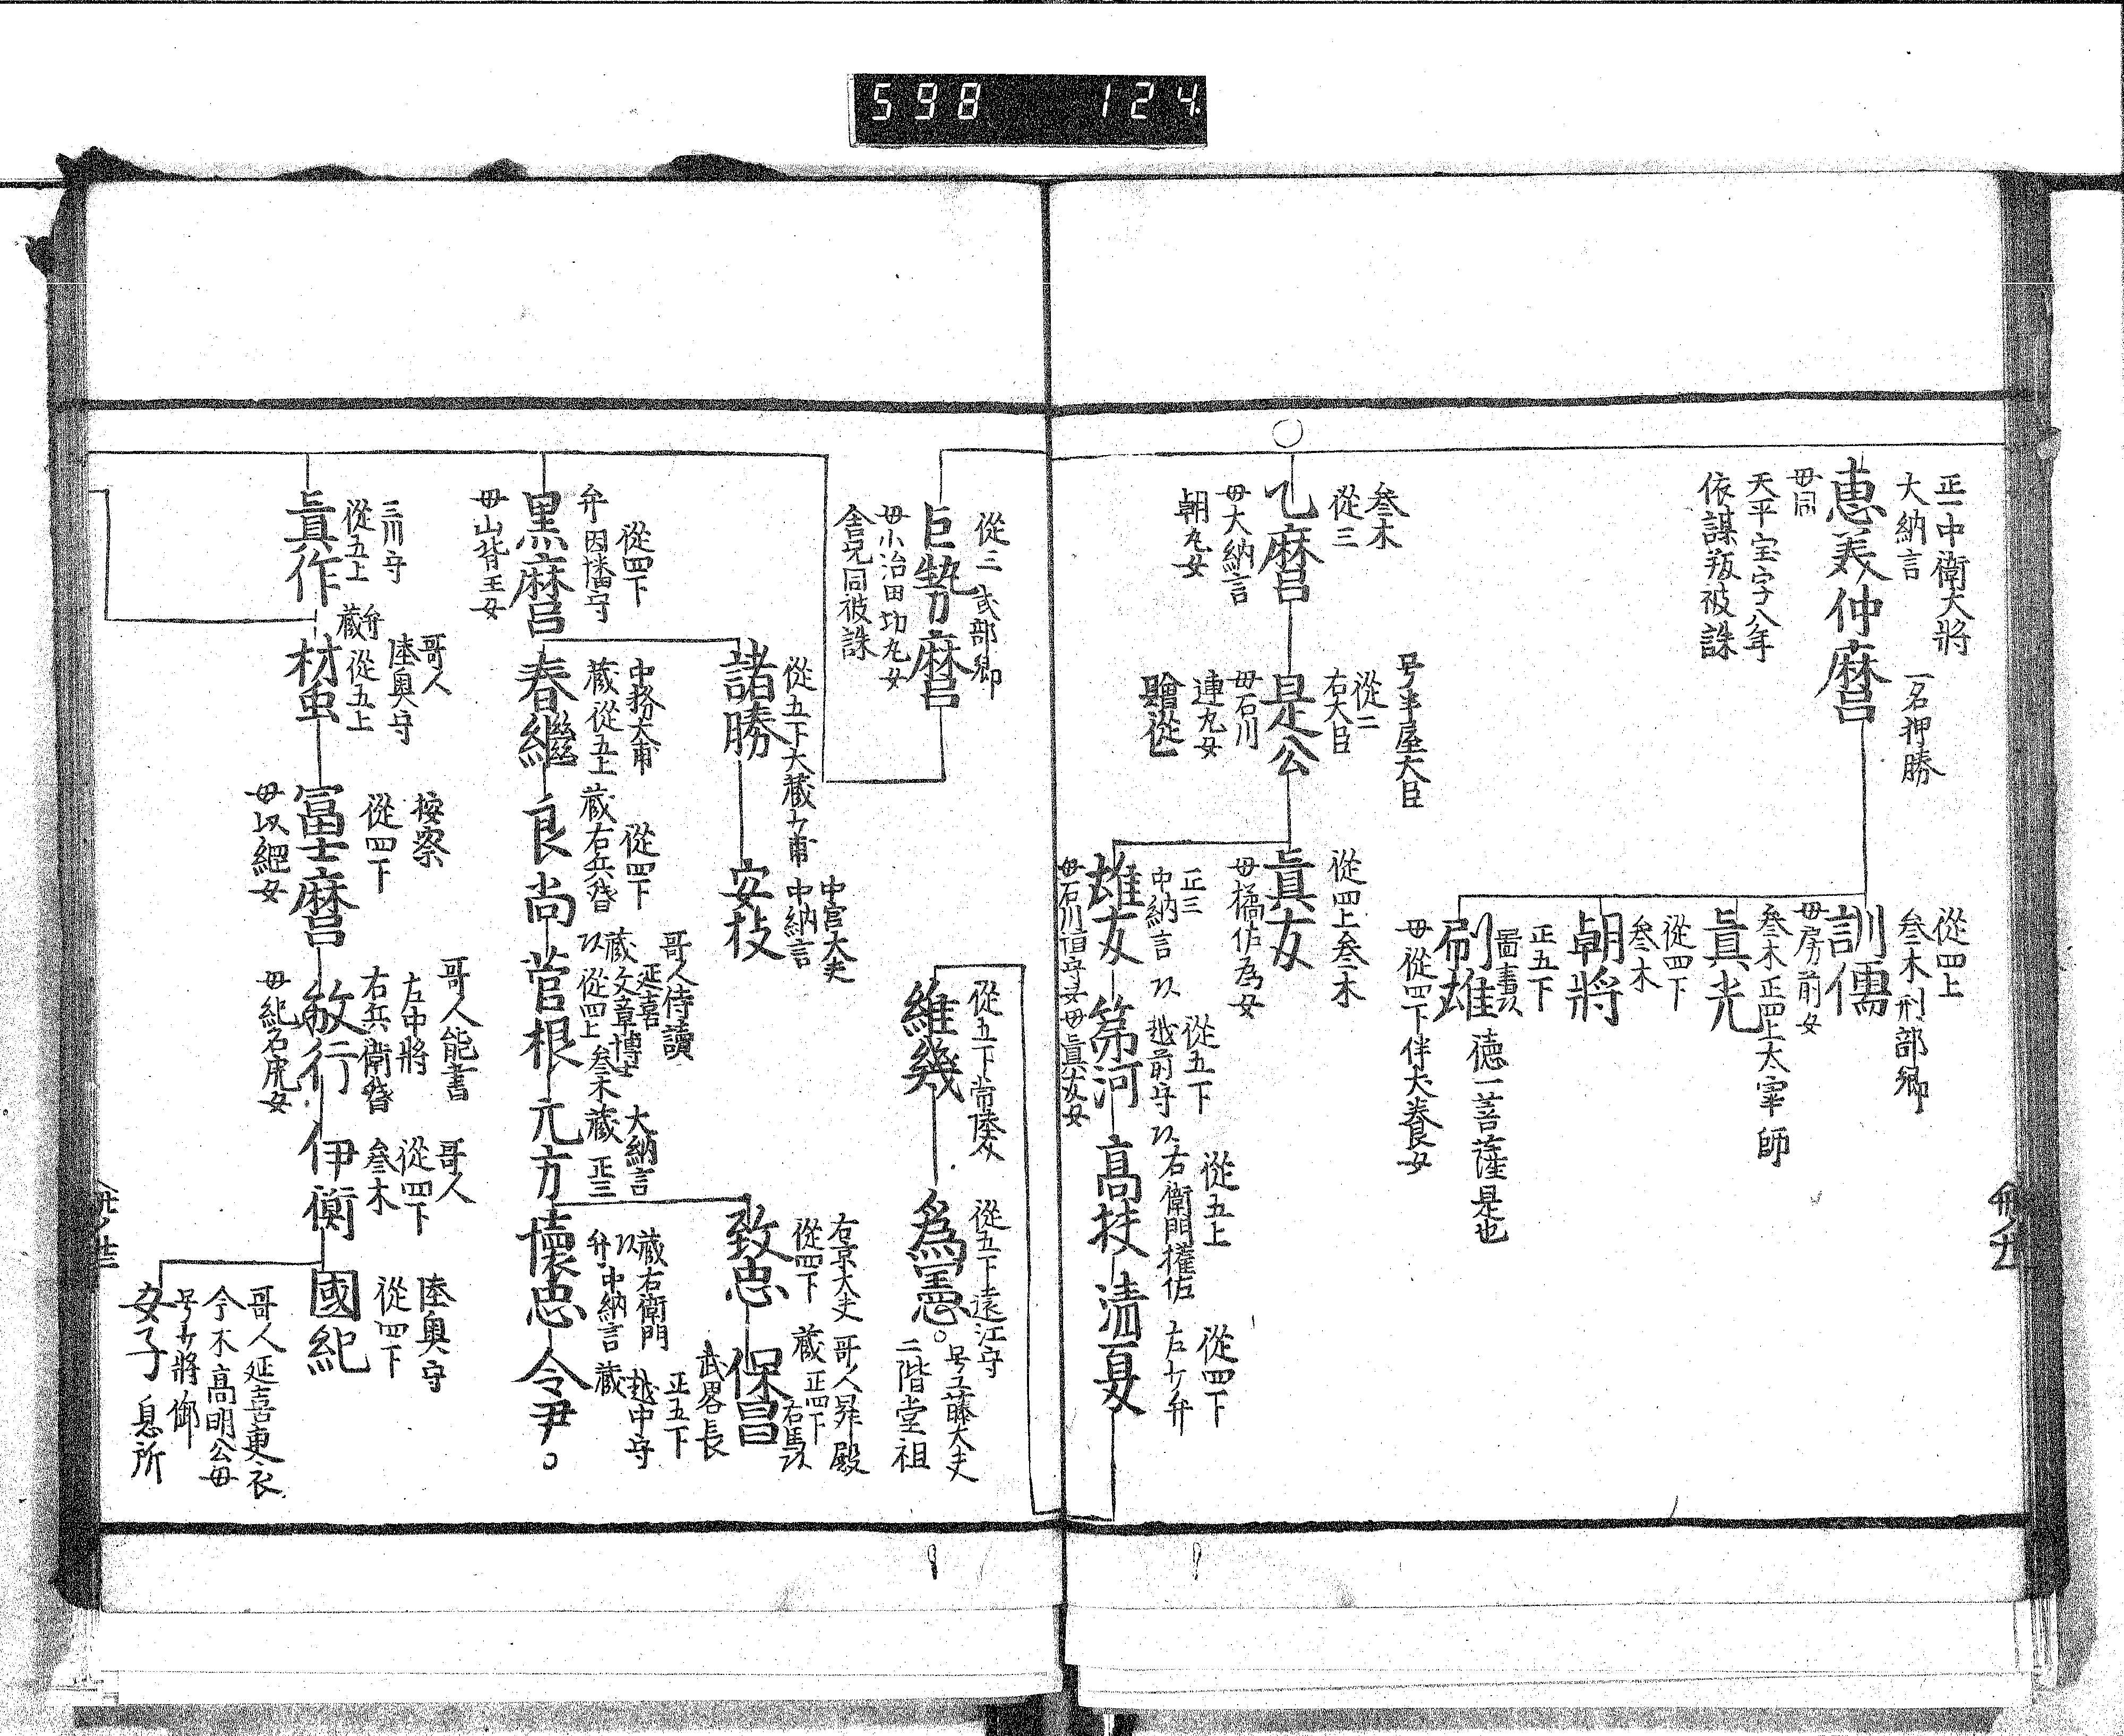 598 124
正一中衛大将
大納言
惠美仲麿
一名押勝
母同
天平宝字八年
依謀叛被誅
從四上
叄木刑部卿
訓儒
母房前女
叄木正四上太宰師
眞光
從四下
叄木
朝將
正五下
圖書以
刷雄
徳一菩薩是也
母從四下伴犬養女
叄木
從三
乙麿
母大納言
朝九女
号牛屋大臣
從二
右大臣
是公
母石川
連九女
贈從一
從四上叄木
眞友
母橘佐為女
正三
中納言
雄友
母石川垣守女母眞友女
從五下
越前守
弟河
從五上
右衛門權佐
高扶
從四下
左少弁
清夏
從三
武部卿
巨勢麿
母小治田功九女
舎兄同被誅
從五下常陸
維幾
從五下遠江守
爲憲
号工藤大夫
二階堂祖
從四下
弁因幡守
黒麿
母山背王女
從五下大藏少甫
諸勝
中宮大夫
中納言
安枝
中務大甫
藏從五上
春繼
從四下
藏右兵督
良尚
哥人侍讀
延喜
藏文章博士
從四上叄木
菅根
大納言
藏正三
元方
右京大夫
從四下
致忠
哥人昇殿
藏正四下
右馬以
保昌
武畧長
藏右衛門
弁中納言
懷忠
正五下
越中守
藏
令尹
三川守
從五上
眞作
哥人
陸奥守
弁
藏
從五上
村虫
按察
從四下
冨士麿
母坂繩女
哥人能書
左中將
右兵衛督
敏行
母紀名虎女
哥人
從四下
叄木
伊衡
陸奥守
從四下
國紀
哥人延喜更衣
今不高明公母
号少將御
息所
女子